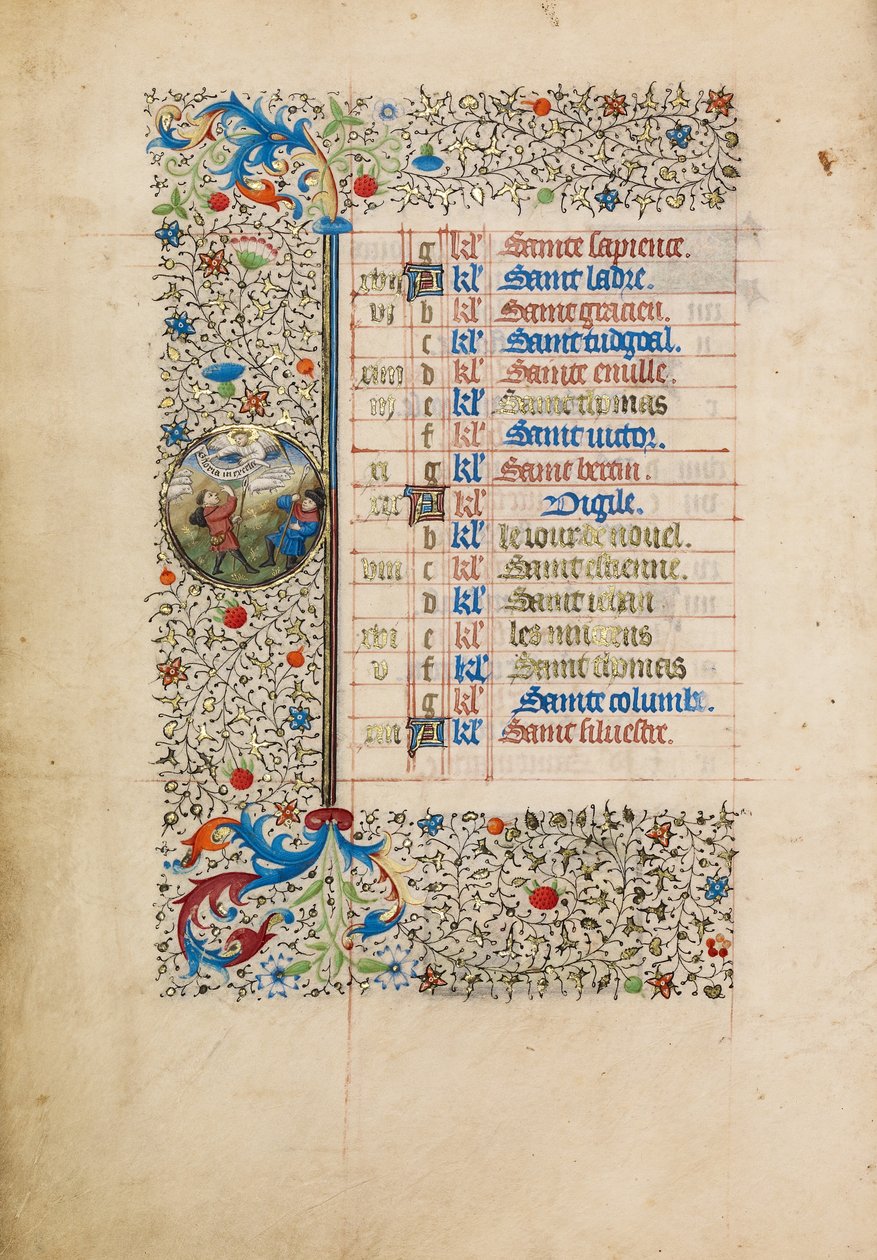 Gloria in excels
g kl' Sainte sapience.
xvii A kl' Saint ladre.
vj b kl' Saint gracien.
c kl' Saint tudgoal.
xiiii d kl' Sainte emille.
iij e kl' Saint thomas
f kl' Saint victor.
xi g kl' Saint bertin.
xix A kl' Vigile.
b kl' le iour de nouel.
viii c kl' Saint estienne.
d kl' Saint iehan
xvi e kl' les innocens
v f kl' Saint thomas
g kl' Sainte columbe.
xiii A kl' Saint siluestre.